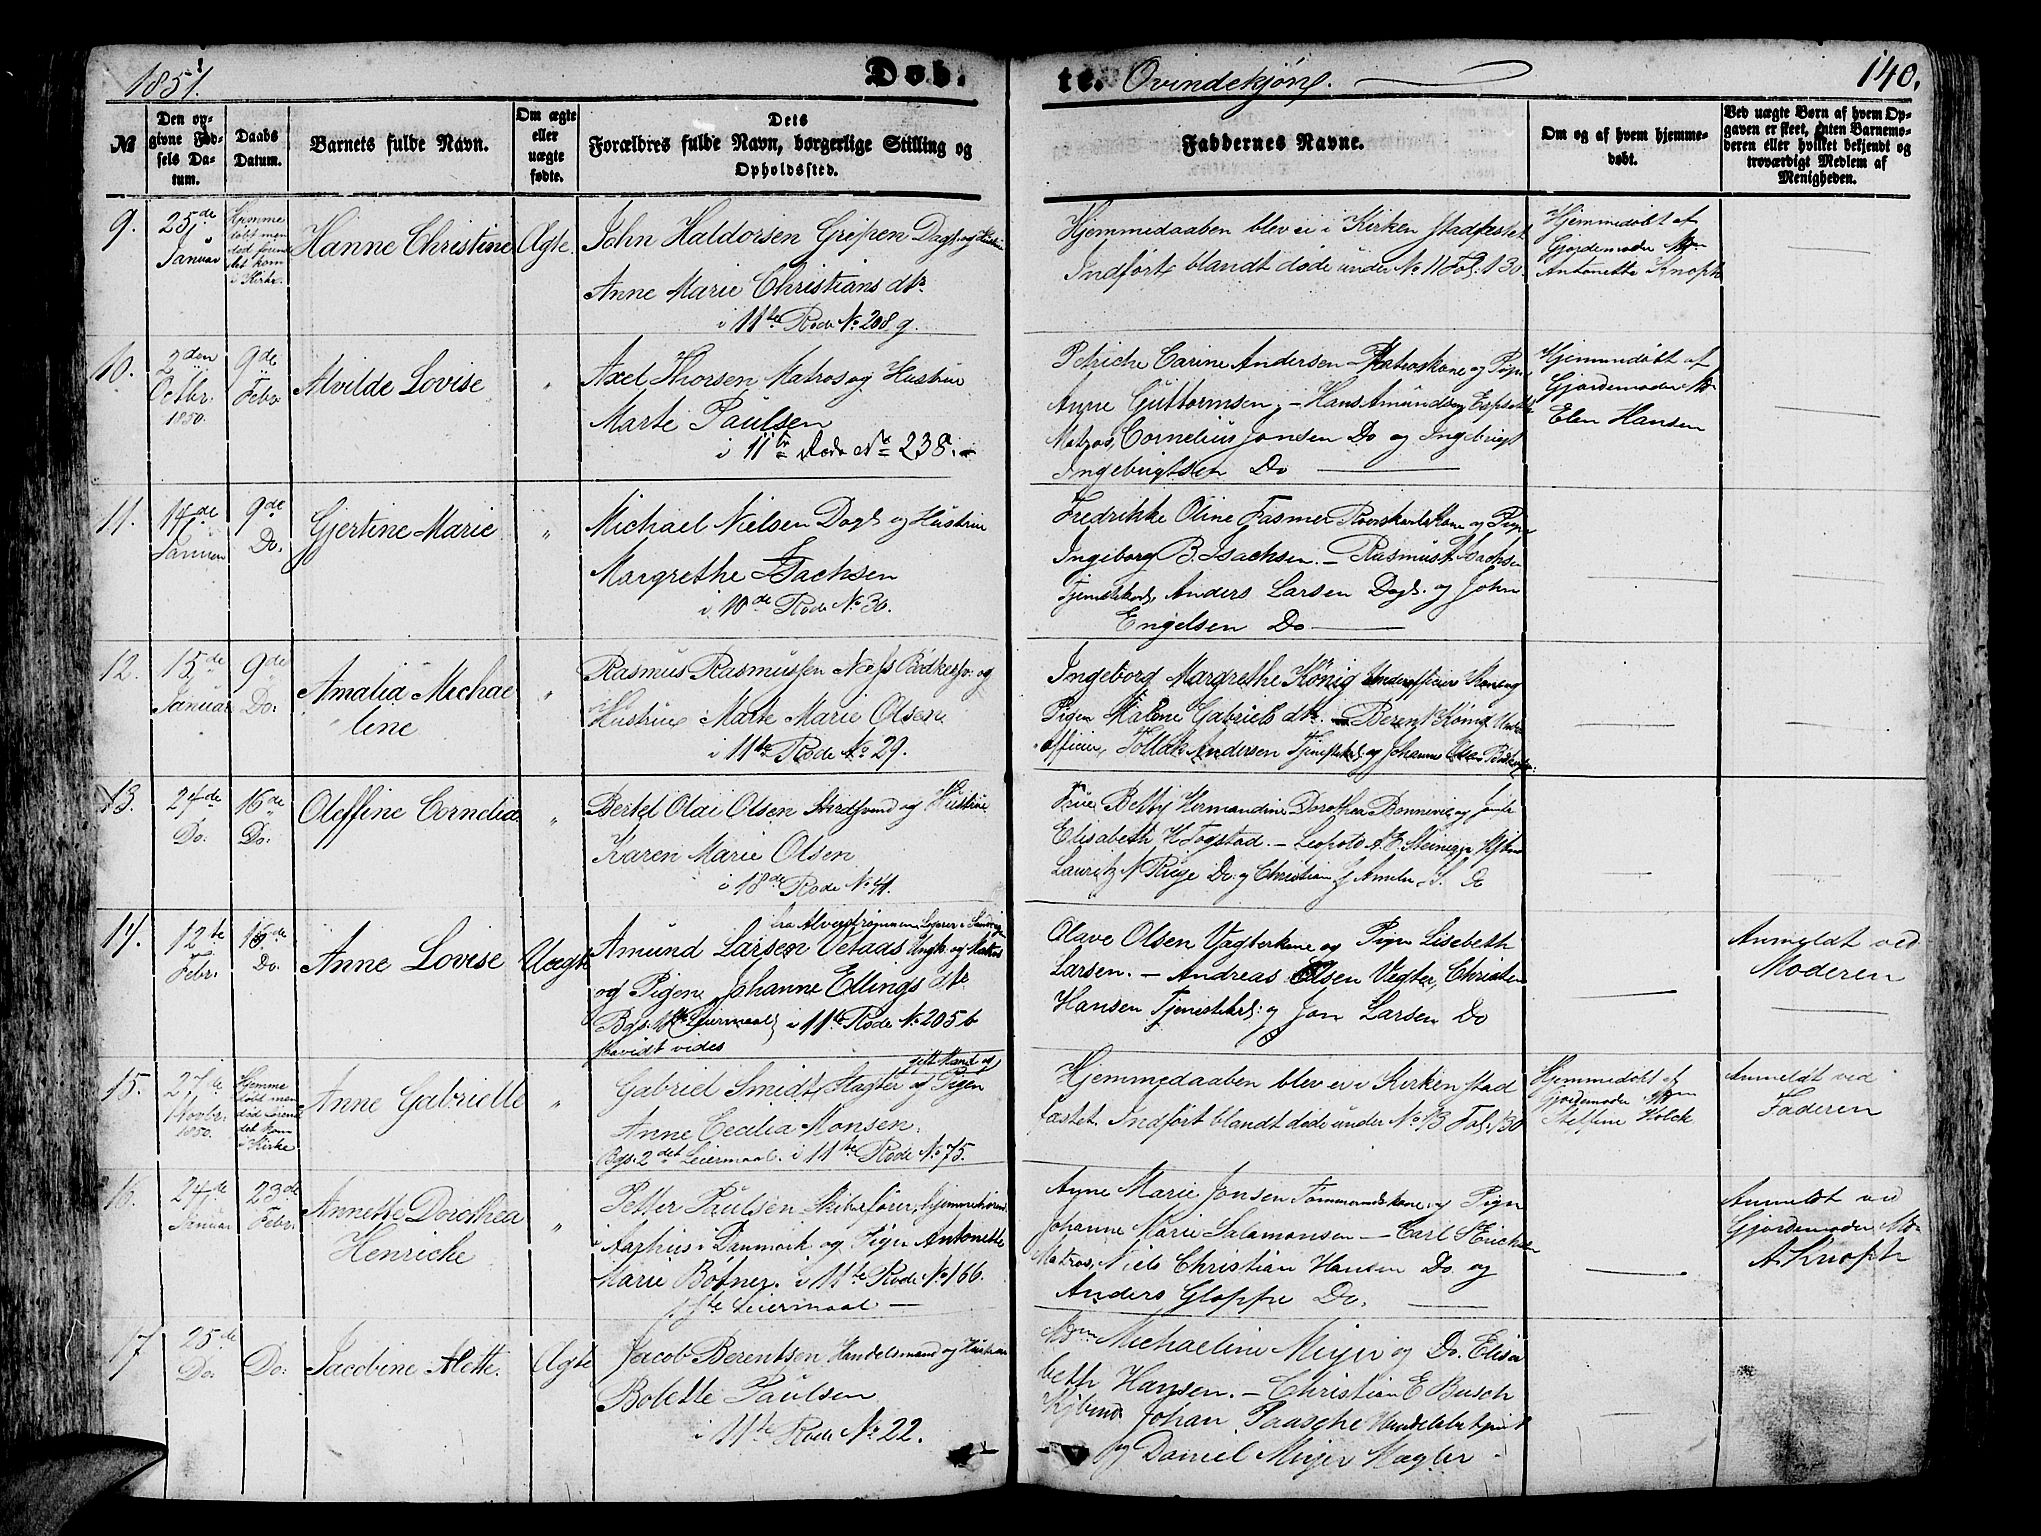 1851.
Døb-
te. Qvindekjøn.
140.
№
Den op-
givne Fød-
sels Da-
tum.
Daabs
Datum.
Barnets fulde Navn.
Om ægte
eller
uægte
fødte.
Dets
Forældres fulde Navn, borgerlige Stilling og
Opholdssted.
Faddernes Navne.
Om og af hvem hjemme-
døbt.
Ved uægte Børn af hvem Op-
gaven er skeet, enten Barnemo-
deren eller hvilket bekjendt og
troværdigt Medlem af
Menigheden.
9.
25de
Januar
Hjemme
døbt men
død førend
det kom
i Kirke.
Hanne Christine
Ægte.
John Haldorsen Greipen Dagl. og Hustrue
Anne Marie Christians dtr
i 11te Rode No 208 g.
Hjemmedaaben blev ei i Kirken stadfæstet
Indført blandt døde under No 11 Fol. 130
Hjemmedøbt af
Gjordemoder Mdm
Antonette Knoph
10.
2den
Octbr.
1850.
9de
Febr.
Alvilde Lovise
"
Axel Thorsen Matros og Hustrue
Marte Paulsen
i 11te Rode No 238.
Petriche Carine Andersen Matroskone og Pigen
Anne Guttormsen, - Hans Amundsen
Matros, Cornelius Jonsen Do og Ingebrigt
Ingebrigtsen Do
Hjemmedøbt af
Gjordemoder Md
Elen Hansen
11.
14de
Januar
9de
Do.
Gjertine Marie
"
Michael Nielsen Dagl. og Hustrue
Margrethe Isachsen
i 10de Rode No 30.
Fredrikke Oline Fasmer Roerskarlskone og Pigen
Ingeborg B. Isachsen. - Rasmus Isachsen
Tjenestekarl, Anders Larsen Dagl. og John
Engelsen Do
12.
15de
Januar
9de
Do.
Amalia Michae
lene
"
Rasmus Rasmussen Næss Bødkersv. og
Hustrue Marte Marie Olsen
i 11te Rode No 29.
Ingeborg Margrethe König Underofficiers Kone og
Pigen Malene Gabriels dtr. - Berent König Under
officier, Tollak Andersen Tjenestekarl og Johannes Olsen
13.
24de
Do.
16de
Do.
Oleffine Cornelia
"
Bertel Olai Olsen og Hustrue
Karen Marie Olsen
i 18de Rode No 41.
Frue Betty Hermandine Dorothea Bonnevie og Jomfr
Elisabeth H. Fogstad. - Leopold A. E. Steinegger
Lauritz N. Riise Do. og Christian Do
14.
12te
Febr.
16de
Do.
Anne Lovise
Uægte
fra Alverstrømmen
Amund Larsen Vetaas Ungk. og Matros
og Pigen Johanne Ellings dtr
Bgs. Leiermaal i 11te Rode No 205 b
vides
Olave Olsen Vægterkone og Pigen Lisebeth
Larsen. - Andreas Olsen Vægter, Christen
Hansen Tjenestekarl og Jon Larsen Do
Anmeldt ved
Moderen
15.
27de
Novbr.
1850.
Hjemme
døbt men
død førend
det kom
i Kirke
Anne Gabrielle
"
gift Mand og
Gabriel Smidt Slagter og Pigen
Anne Cecilia Monsen.
Bgs. 2det Leiermaal. i 11te Rode No 75.
Hjemmedaaben blev ei i Kirken stad
fæstet. Indført blandt døde under No 13 Fol. 130
Hjemmedøbt af
Gjordemoder Mdm
Steffine Holck
Anmeldt ved
Faderen
16.
24de
Januar
23de
Febr.
Annette Dorothea
Henricke
"
Petter Paulsen Skibsfører, hjemmehørende
i Aarhus i Danmark og Pigen Antonette
Marie Böfner. i 11te Rode No 166.
1ste Leiermaal
Anne Marie Jonsen Tømmermandskone og Pigen
Johanne Marie Salamonsen - Carl S. Erichsen
Matros, Niels Christian Hansen Do. og
Anders Gloppe Do.
Anmeldt ved
Gjordemoder Md
A. Knoph
17
25de
Do.
Do.
Jacobine Alette.
Ægte
Jacob Berentsen Handelsmand og Hustrue
Bolette Paulsen
i 11te Rode No 22.
Mdm Michaeline Meyer og Do. Elisa
beth Hansen. - Christian E. Busch
Kjøbmd Johan Paasche Handelsbetjent
og Daniel Meyer Mægler